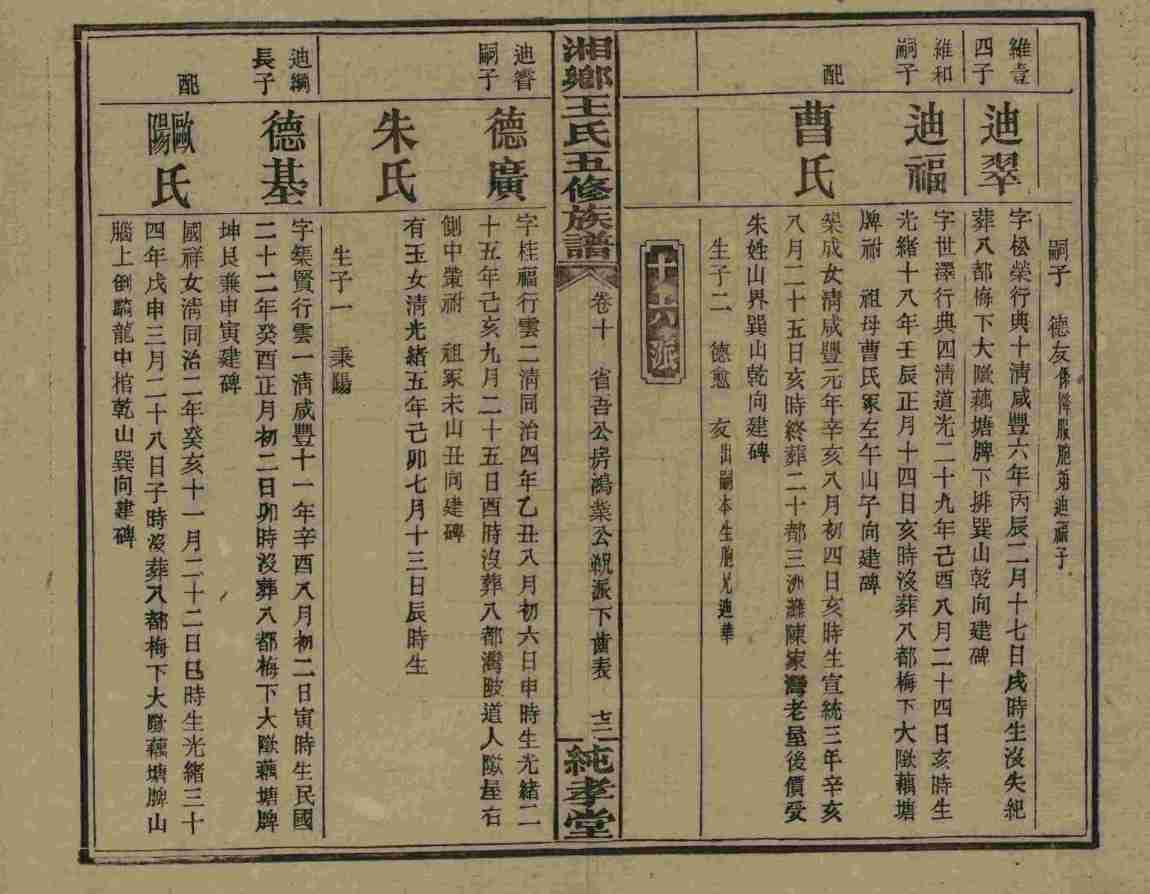 嗣子 德友係降服胞弟迪福子
維壹四子
迪翠
字松榮行典十清咸豐六年丙辰二月十七日戌時生沒失紀
葬八都梅下大歐藕塘牌下排巽山乾向建碑
維和嗣子
迪福
字世澤行典四清道光二十九年己酉八月二十四日亥時生
光緒十八年壬辰正月十四日亥時沒葬八都梅下大歐藕塘
牌祔 祖母曹氏冢左午山子向建碑
配
曹氏
榮成女清咸豐元年辛亥八月初四日亥時生宣統三年辛亥
八月二十五日亥時終葬二十都三洲灘陳家灣老屋後價受
朱姓山界巽山乾向建碑
生子二 德愈 友出嗣本生胞兄迪華
十六派
湘鄉王氏五修族譜
卷十 省吾公房鴻業公祝派下齒表 十二
純孝堂
嗣子
德廣
字桂福行雲二清同治四年乙丑八月初六日申時生光緒二
十五年己亥九月二十五日酉時沒葬八都灣陂道人歐屋右
側中塋祔 祖冢未山丑向建碑
朱氏
有玉女清光緒五年己卯七月十三日辰時生
生子一 秉陽
迪綱長子
德基
字集賢行雲一清咸豐十一年辛酉八月初二日寅時生民國
二十二年癸酉正月初二日卯時沒葬八都梅下大歐藕塘牌
坤艮兼申寅建碑
配
歐陽氏
國祥女清同治二年癸亥十一月二十二日巳時生光緒三十
四年戊申三月二十八日子時沒葬八都梅下大歐藕塘牌山
腦上倒騎龍中棺乾山巽向建碑